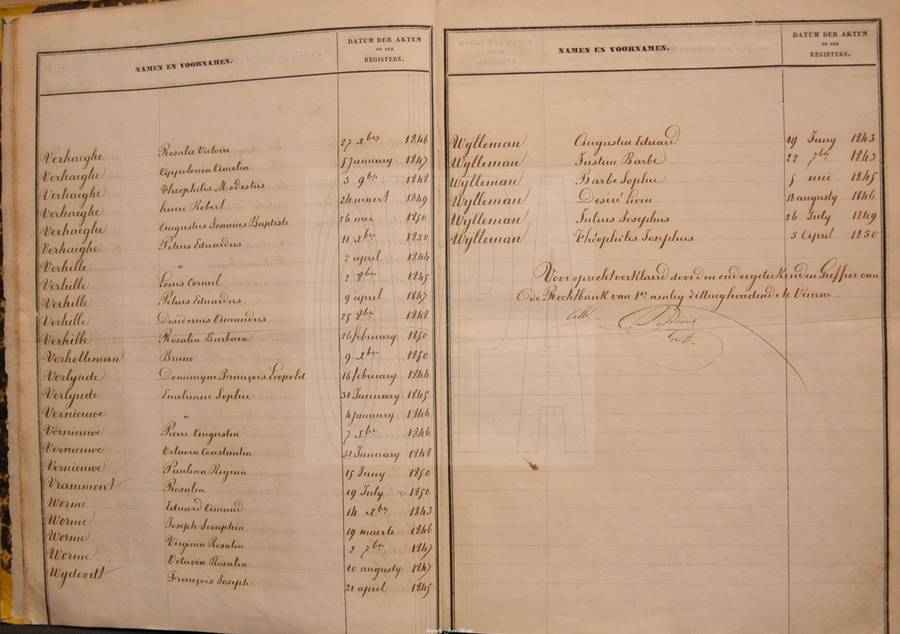 NAMEN EN VOORNAMEN. DATUM DER AKTEN
OF DER
REGISTERS.
Verhaeghe Rosalie Victoire 27 xbre 1846
Verhaeghe Appolonia Amelia 5 January 1847
Verhaeghe Theophilus Modestus 3 9bre 1848
Verhaeghe Henri Robert 24 maert 1849
Verhaeghe Augustus Joannes Baptiste 26 mei 1850
Verhaeghe Petrus Eduardus 11 xbre 1850
Verhille " 2 april 1844
Verhille Louis Corneil 2 8bre 1845
Verhille Petrus Eduardus 9 april 1847
Verhille Desiderius Amandus 25 8bre 1848
Verhille Rosalia Barbara 26 february 1850
Verholleman Bruno 9 xbre 1850
Verlynde Dominique François Leopold 16 february 1844
Verlynde Emelienne Sophie 31 January 1845
Vernieuwe " 4 january 1846
Vernieuwe Pierre Augustin 7 xbre 1846
Vernieuwe Octavia Constantia 31 January 1848
Vernieuwe Paulina Regina 15 Juny 1850
Vrammont Rosalia 19 July 1850
Worme Eduard Amand 14 xbre 1843
Worme Joseph Seraphin 19 maerte 1846
Worme Virginia Rosalia 2 7bre 1847
Worme Octavia Rosalia 10 augusty 1847
Wydoodt François Joseph 21 april 1845
NAMEN EN VOORNAMEN. DATUM DER AKTEN
OF DER
REGISTERS.
Wylleman Augustin Eduard 19 Juny 1843
Wylleman Justine Barbe 22 7bre 1843
Wylleman Barbe Sophie 5 mei 1845
Wylleman Desiré 13 augusty 1846
Wylleman Julius Josephus 26 July 1849
Wylleman Théophiles Josephus 5 April 1850
Voor oprecht verklaerd door den ondergeteekenden Greffier van
de Rechtbank van 1en aenleg zittinghoudende te Veurne.